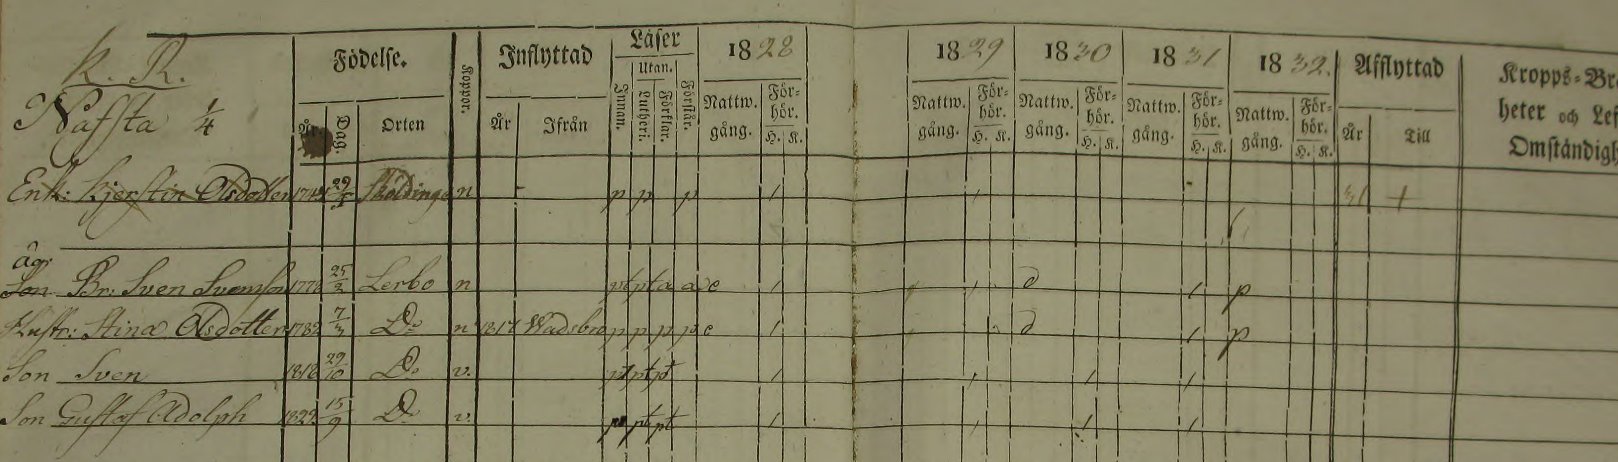 K. R.
Nafsta 1/4
Födelse.
År.
Dag.
Orten
Koppor.
Inflyttad
År
Ifrån
Läser
Innan.
Utan.
Lutheri:
Förklar.
Förstår.
1828
Nattw.
gång.
För=
hör.
H. K.
1829
Nattw.
gång.
För=
hör.
H. K.
1830
Nattw.
gång.
För=
hör.
H. K.
1831
Nattw.
gång.
För=
hör.
H. K.
1832.
Nattw.
gång.
För=
hör.
H. K.
Afflyttad
År
Till
Kropps=Br
heter och Lef
Omständigh
Enk: Kjerstin Olsdotter 29 Sköldinge n p p p 31 +
äg.
Son Br: Sven Svensson 1778 25/2 Lerbo n a a d
Hustr: Stina Olsdotter 1782 7/3 Do n 1817 Wadsbro p p p p d p
Son Sven 1818 29/10 Do v. pt pt pt
Son Gustaf Adolph 1822 15/9 Do v. pt pt